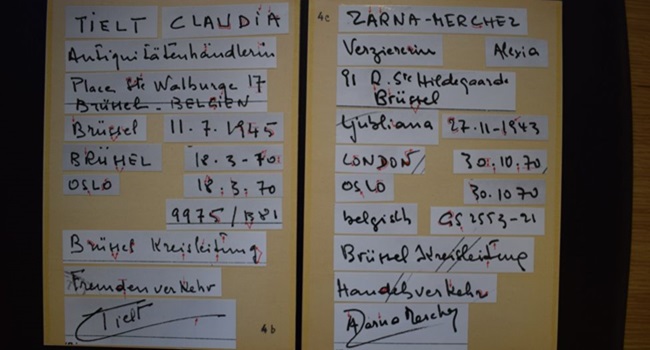 TIELT CLAUDIA
Antiquitätenhändlerin
Place Ste Walburge 17
BRÜSSEL - BELGIEN
Brüssel 11.7.1945
BRÜHEL 18.3-70
OSLO 18.3.70
9975/B81
Brüssel Kreisleitung
Fremdenverkehr
Tielt
4b
4c
ZARNA-MERCHEZ
Verziererin Alexia
91 R. Ste Hildegaarde
Brüssel
Ljubliana 27-11-1943
LONDON 30.10.70
OSLO 30.10 70
belgisch GS 2553-21
Brüssel Kreisleitung
Handelsverkehr